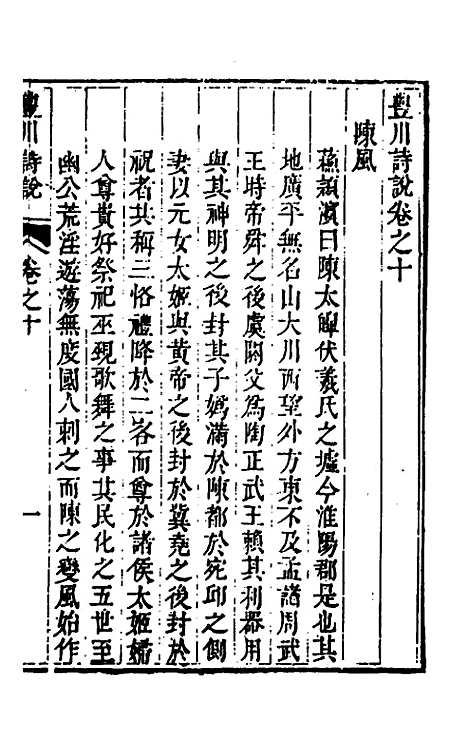 豐川詩說卷之十
陳風
蘇潁濱曰陳太皥伏羲氏之墟今淮陽郡是也其
地廣平無名山大川西望外方東不及孟諸周武
王時帝舜之後虞閼父為陶正武王賴其利器用
與其神明之後封其子媯滿於陳都於宛邱之側
妻以元女太姬與黃帝之後封於冀堯之後封於
祝者共稱三恪禮降於二客而尊於諸侯太姬婦
人尊貴好祭祀巫覡歌舞之事其民化之五世至
幽公荒淫遊蕩無度國人刺之而陳之變風始作
豐川詩說
卷之十
一